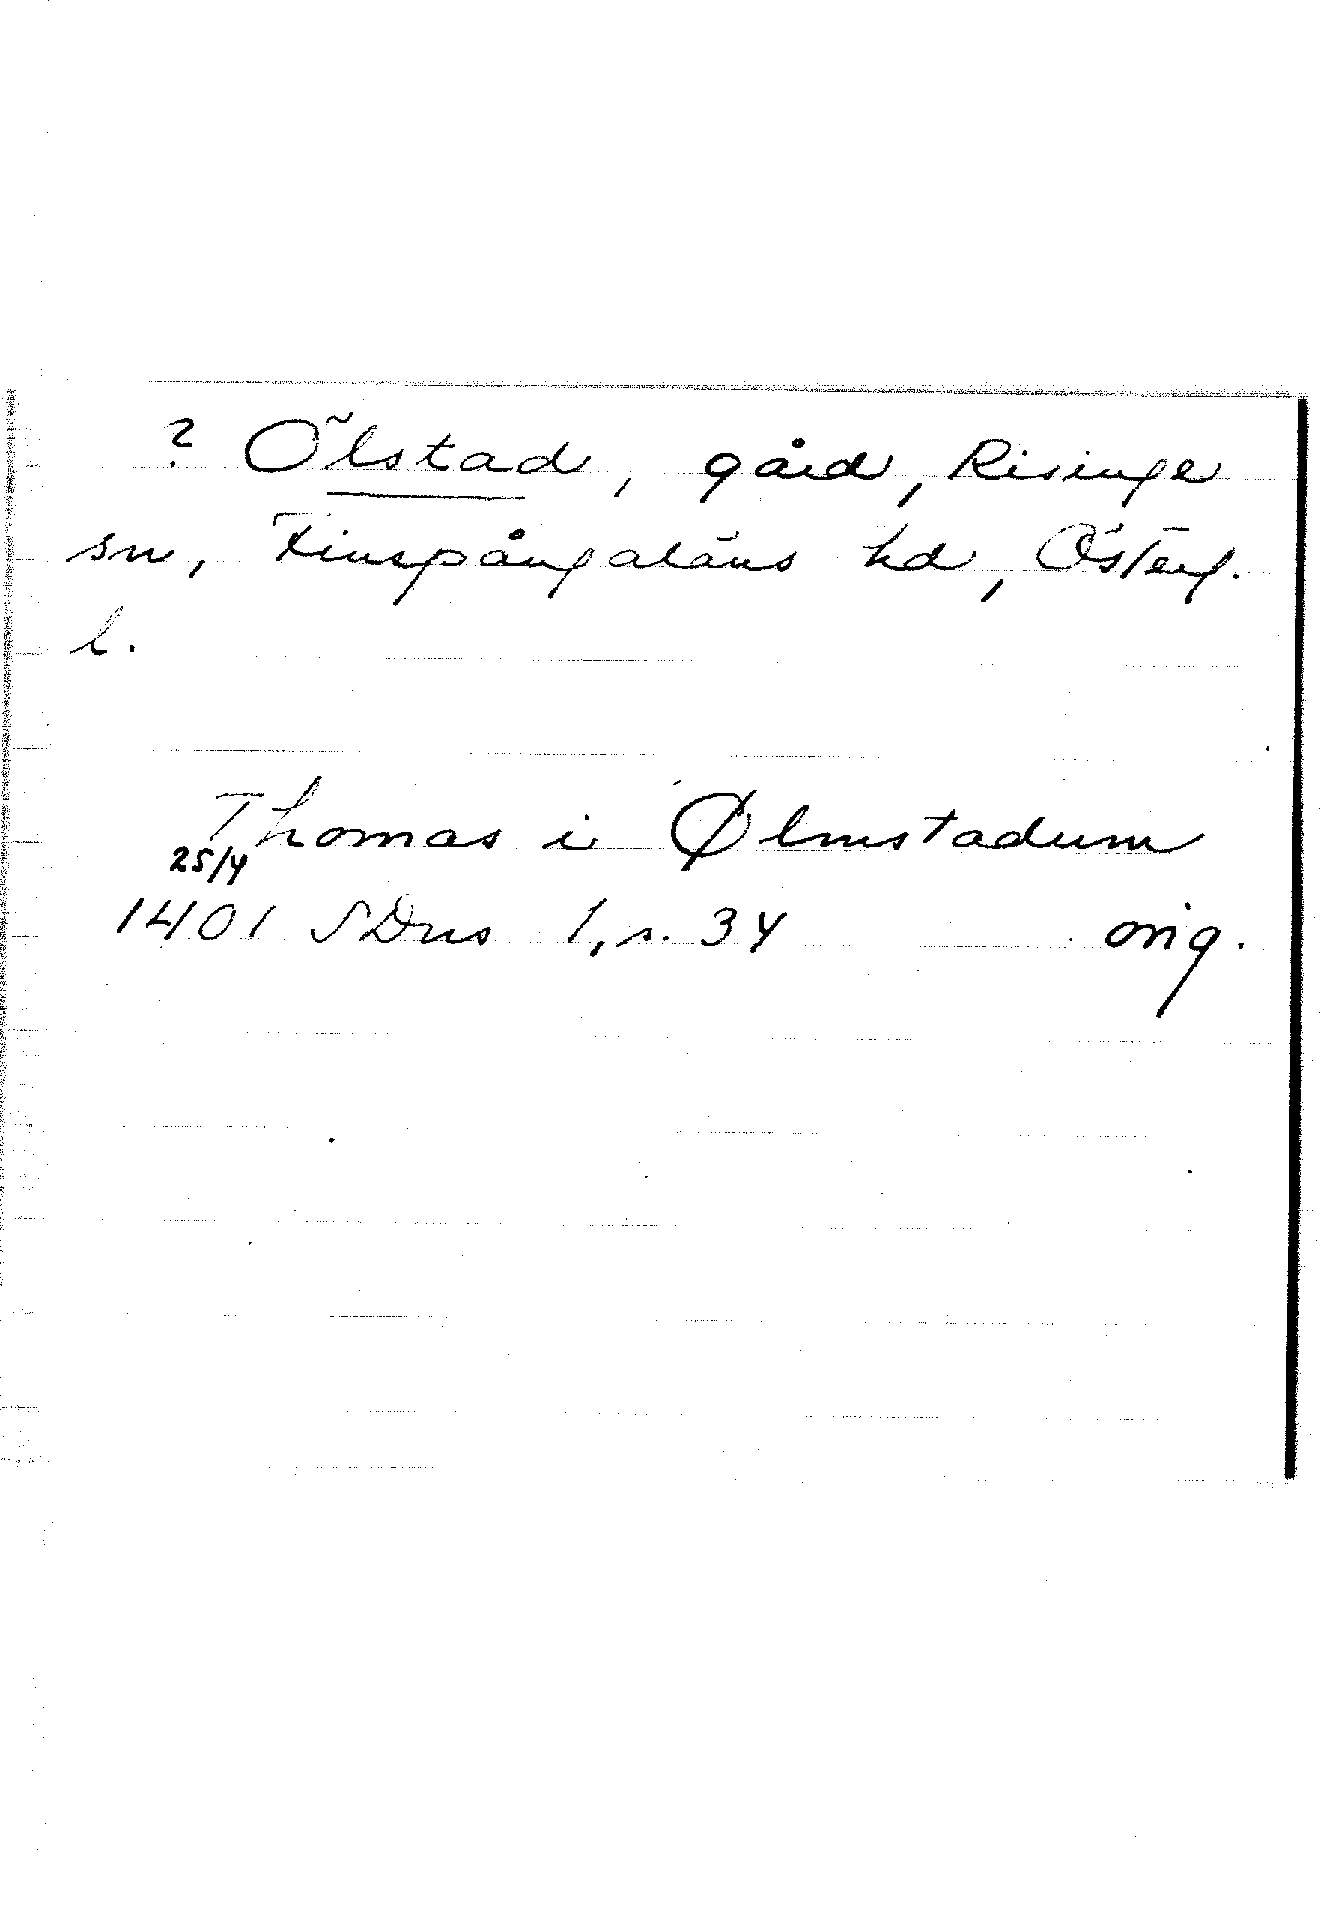 ? Ölstad, gård, Risinge
sn, Finspångaläns hd, Österg.
l.
Thomas i Ølmstadum
25/4
1401 SDns 1, s. 34 orig.